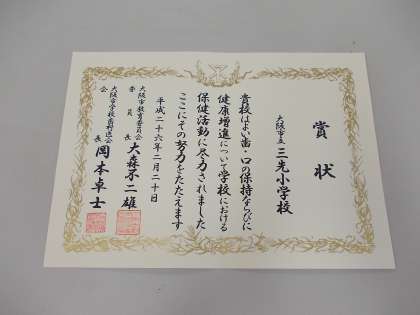 賞状
大阪市立三先小学校
貴校はよい歯・口の保持ならびに
健康増進について学校における
保健活動に尽力されました
ここにその努力をたたえます
平成二十六年二月二十日
大阪市教育委員会
委員長 大森不二雄
大阪市学校歯科医会
会長 岡本卓士